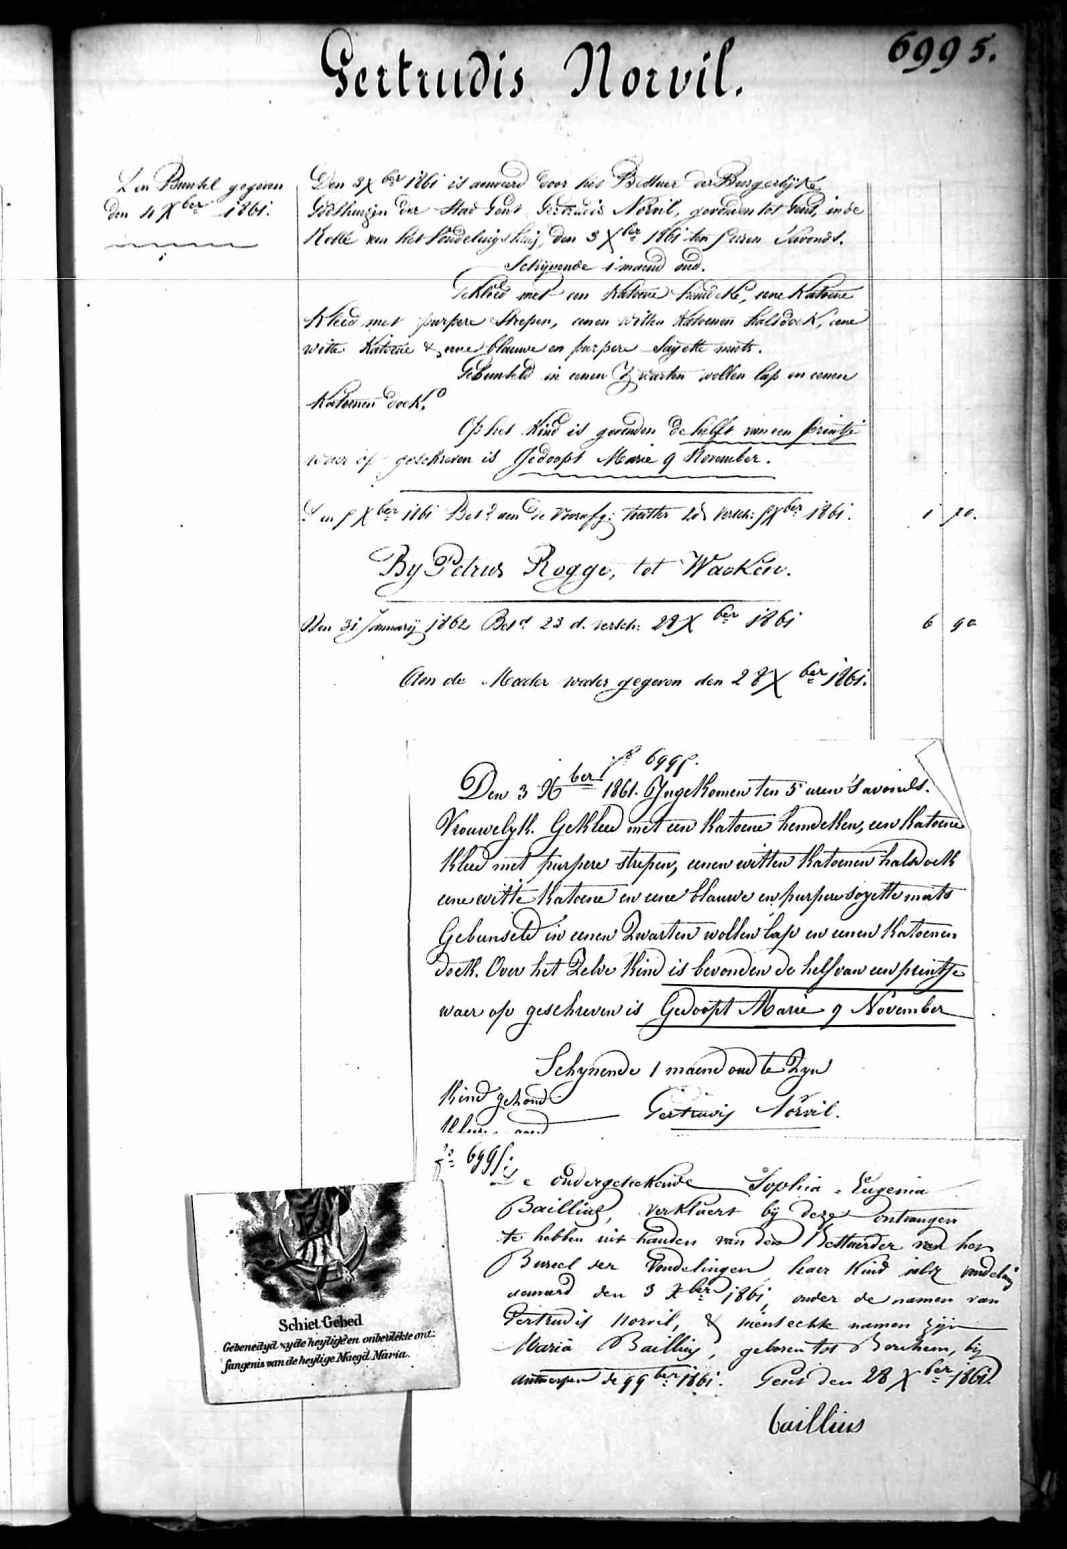 6995.
Gertrudis Norvil.
Een Bunsel gegeven
den 4 Xber 1861.
Den 3 Xber 1861 is aenveerd door het Bestuer der Burgerlijke
Godshuizen der Stad Gent Gertrudis Norvil, gevonden tot Gent, in de
Rolle van het Vondelingshuis, den 3 Xber 1861 ten 5 uren 's avonds.
Schijnende 1 maend oud.
Gekleed met een Katoene hemdeke, eene Katoene
Kleed met purpere strepen, eenen witten Katoenen halsdoek, eene
witte Katoene & eene blauwe en purpere Sayette muts.
Gebunseld in eenen Zwarten wollen lap en eenen
Katoenen doek.
Op het Kind is gevonden de helft van een printje
waer op geschreven is Gedoopt Marie 9 November.
Den 5 Xber 1861 Betd aen de Voorsz: 5 Xber 1861. 1 70.
By Petrus Rogge, tot Wacken.
Den 31 Januarij 1862 Betd 23 d. versch: 28 Xber 1861 6 90
Aen de Moeder weder gegeven den 28 Xber 1861.
No 6995.
Den 3 Xber 1861. Ingekomen ten 5 uren 's avonds.
Vrouwelyk. Gekleed met een Katoene hemdeken, een Katoene
Kleed met purpere strepen, eenen witten Katoenen halsdoek
eene witte Katoene en eene blauwe en purpere sayette muts
Gebunseld in eenen Zwarten wollen lap en eenen Katoenen
doek. Over het Zelve Kind is bevonden de helf van een printje
waer op geschreven is Gedoopt Marie 9 November
Schynende 1 maend oud te Zyn
Kind gezond
Gertrudis Norvil.
No 6995.
De ondergeteekende Sophia-Eugenia
Baillius, verklaert bij deze ontvangen
te hebben uit handen van den Bestuerder van het
Bureel der Vondelingen haer Kind als vondeling
aenveerd den 3 Xber 1861, onder de namen van
Gertrudis Norvil, & wens echte namen zijn
Maria Baillius, geboren tot Berchem, bij
Antwerpen de 9 9ber 1861. Gent den 28 Xber 1861.
Baillius
Schiet-Gebed
Gebenedyd zy de heylige en onbevlekte ont-
fangenis van de heylige Maegd Maria.